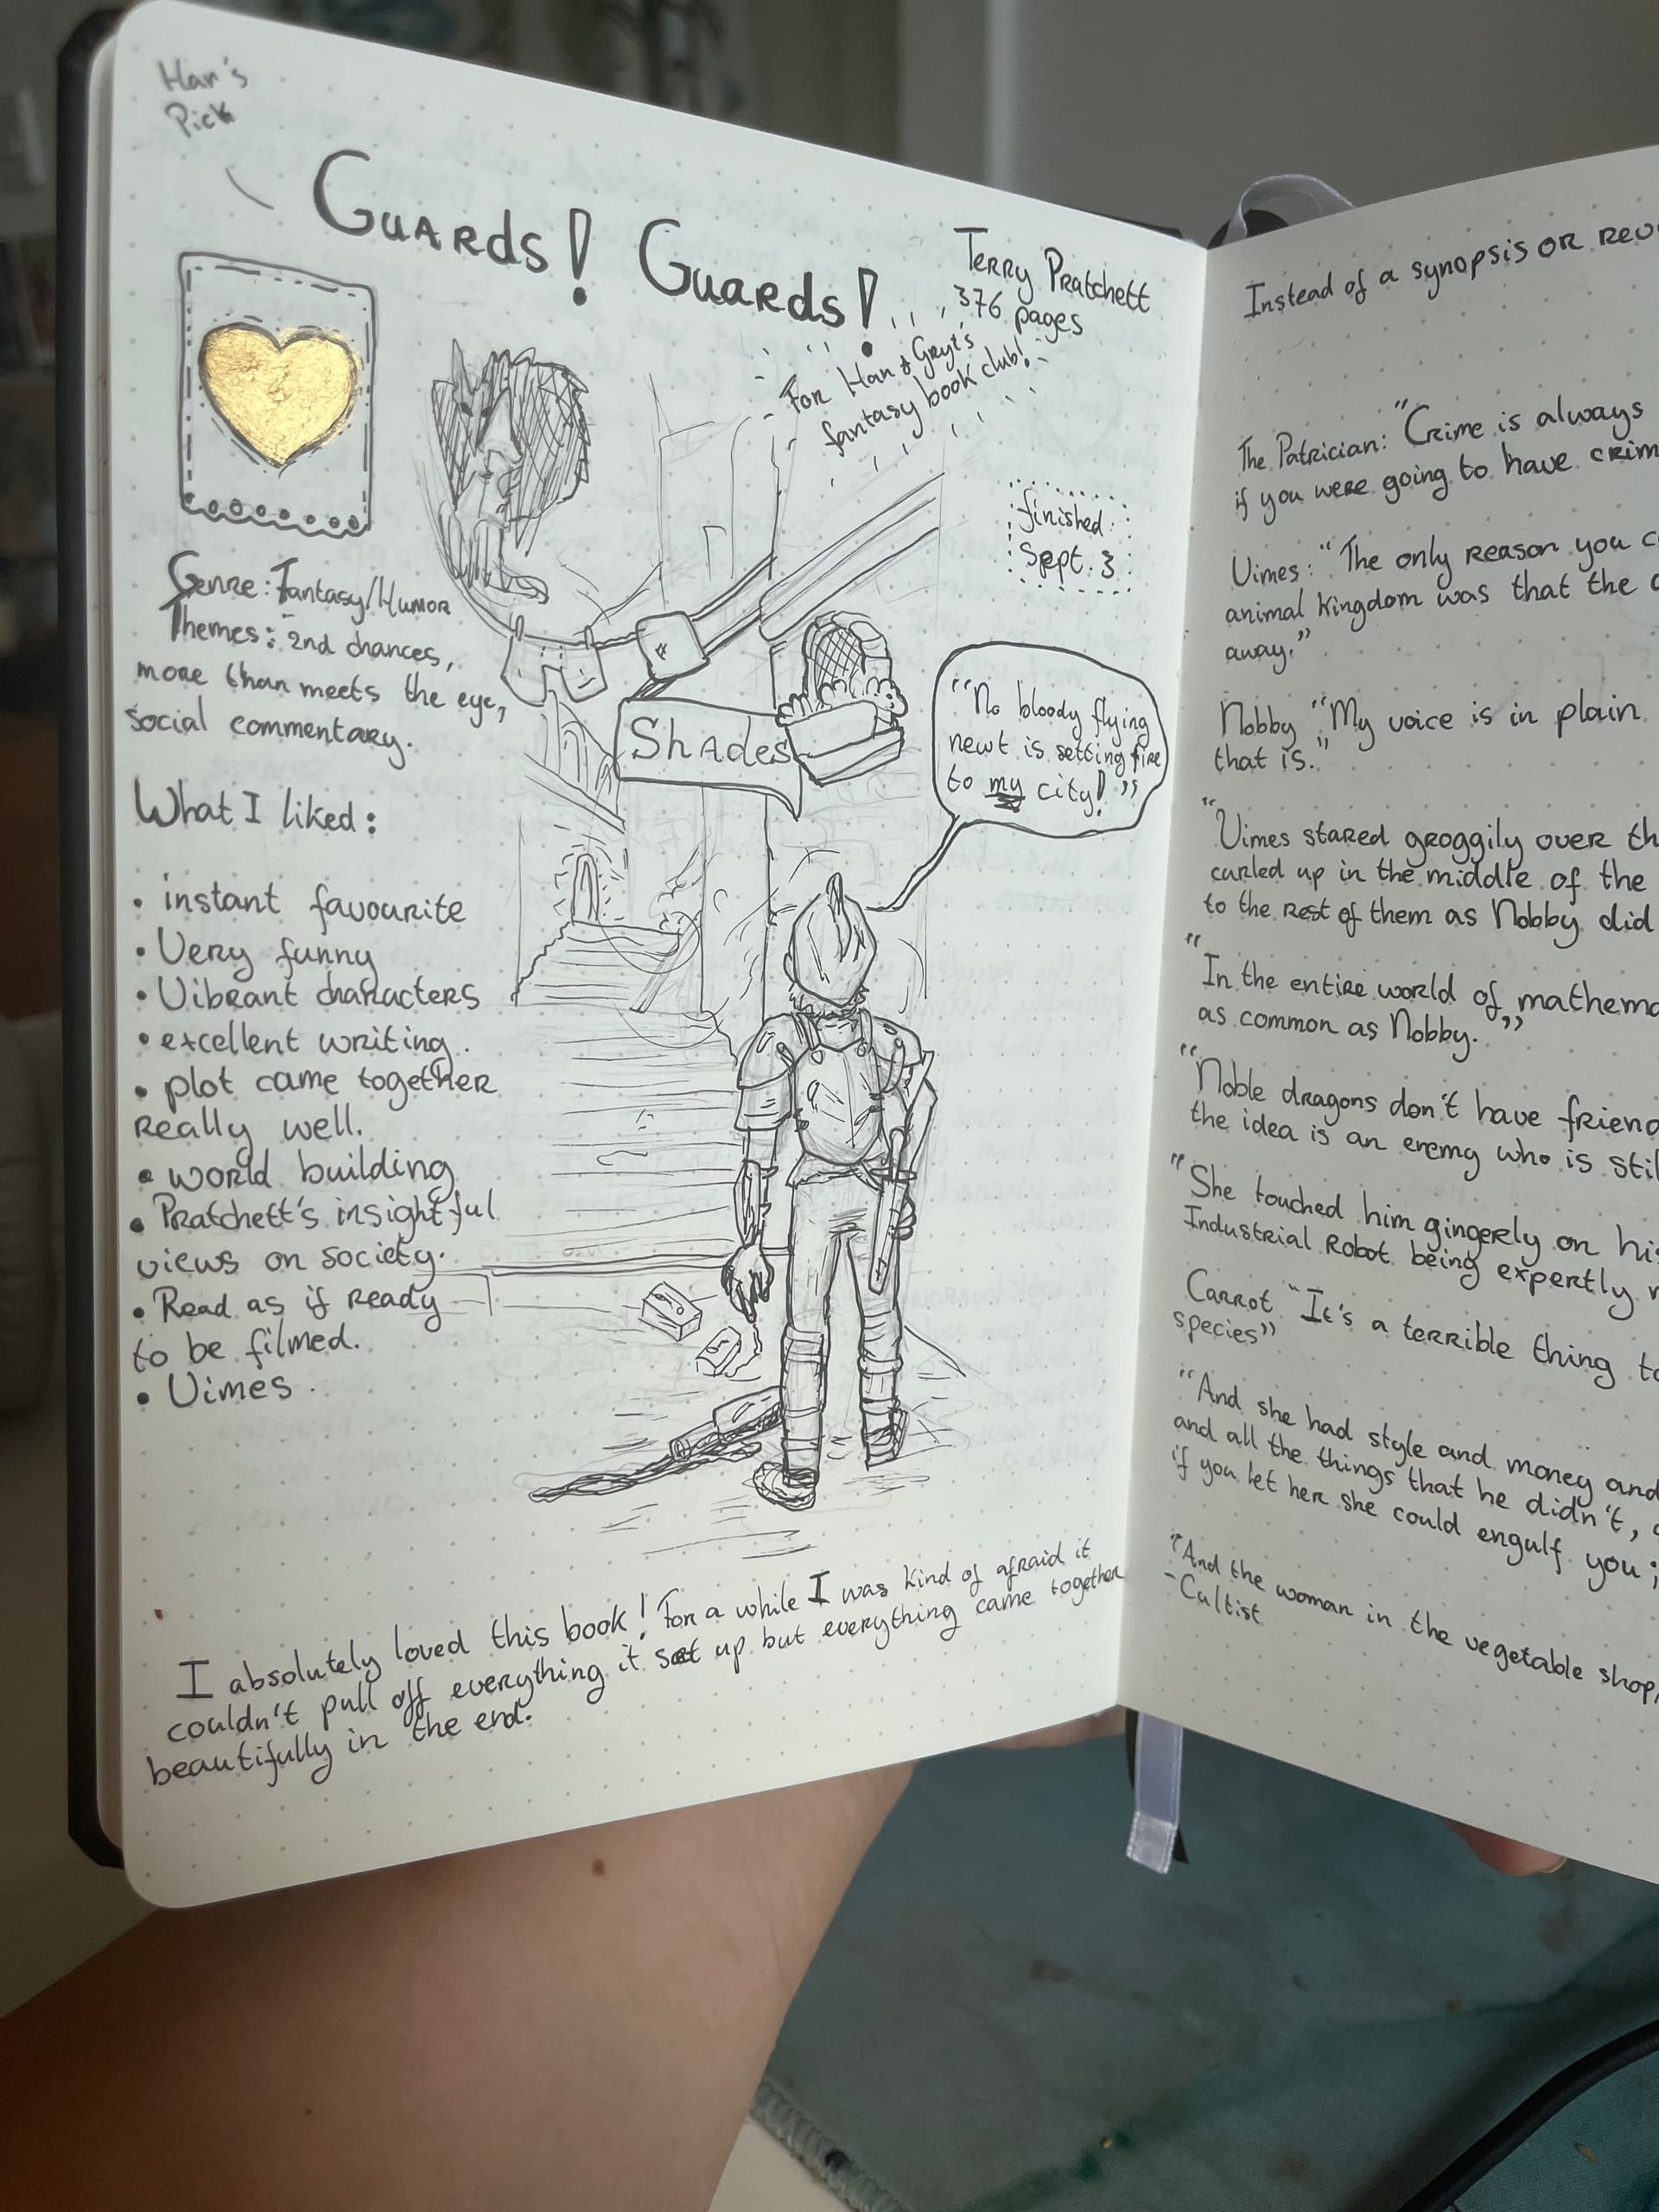 Han's
Pick
Guards! Guards!
Terry Pratchett
376 pages
For Han & Gryt's
fantasy book club!
finished
Sept. 3
Genre: Fantasy/Humor
Themes: 2nd chances,
more than meets the eye,
social commentary.
Shades
"No bloody flying
newt is setting fire
to my city!"
What I liked:
• instant favourite
• Very funny
• Vibrant characters
• excellent writing.
• plot came together
really well.
• world building
• Pratchett's insightful
views on society.
• Read as if ready
to be filmed.
• Vimes.
I absolutely loved this book! For a while I was kind of afraid it
couldn't pull off everything it set up but everything came together
beautifully in the end.
Instead of a synopsis or
The Patrician: "Crime is always
if you were going to have
Vimes: "The only reason you
animal kingdom was that the
away."
Nobby "My voice is in plain
that is."
"Vimes stared groggily over
curled up in the middle of the
to the rest of them as Nobby did
"In the entire world of
as common as Nobby."
"Noble dragons don't have
the idea is an enemy who is
"She touched him gingerly on
Industrial Robot being expertly
Carrot "It's a terrible thing
species"
"And she had style and money and
and all the things that he didn't,
if you let her she could engulf you;
"And the woman in the vegetable shop,
- Cultist